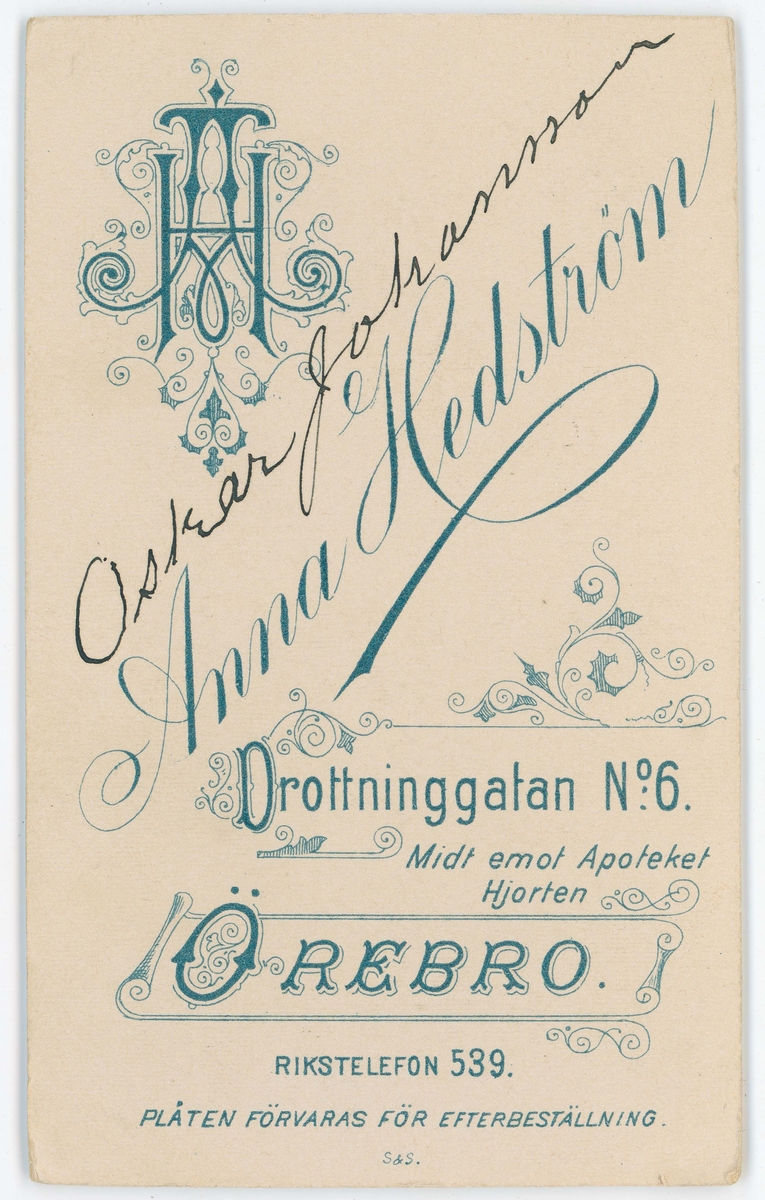 AH
Oskar Johansson
Anna Hedström
Drottninggatan No 6.
Midt emot Apoteket
Hjorten
ÖREBRO.
RIKSTELEFON 539.
PLÅTEN FÖRVARAS FÖR EFTERBESTÄLLNING.
S&S.